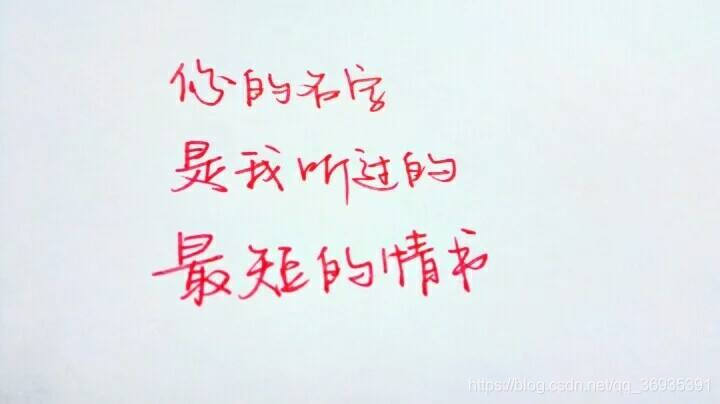 你的名字
是我听过的
最短的情书
https://blog.csdn.net/qq_36935391